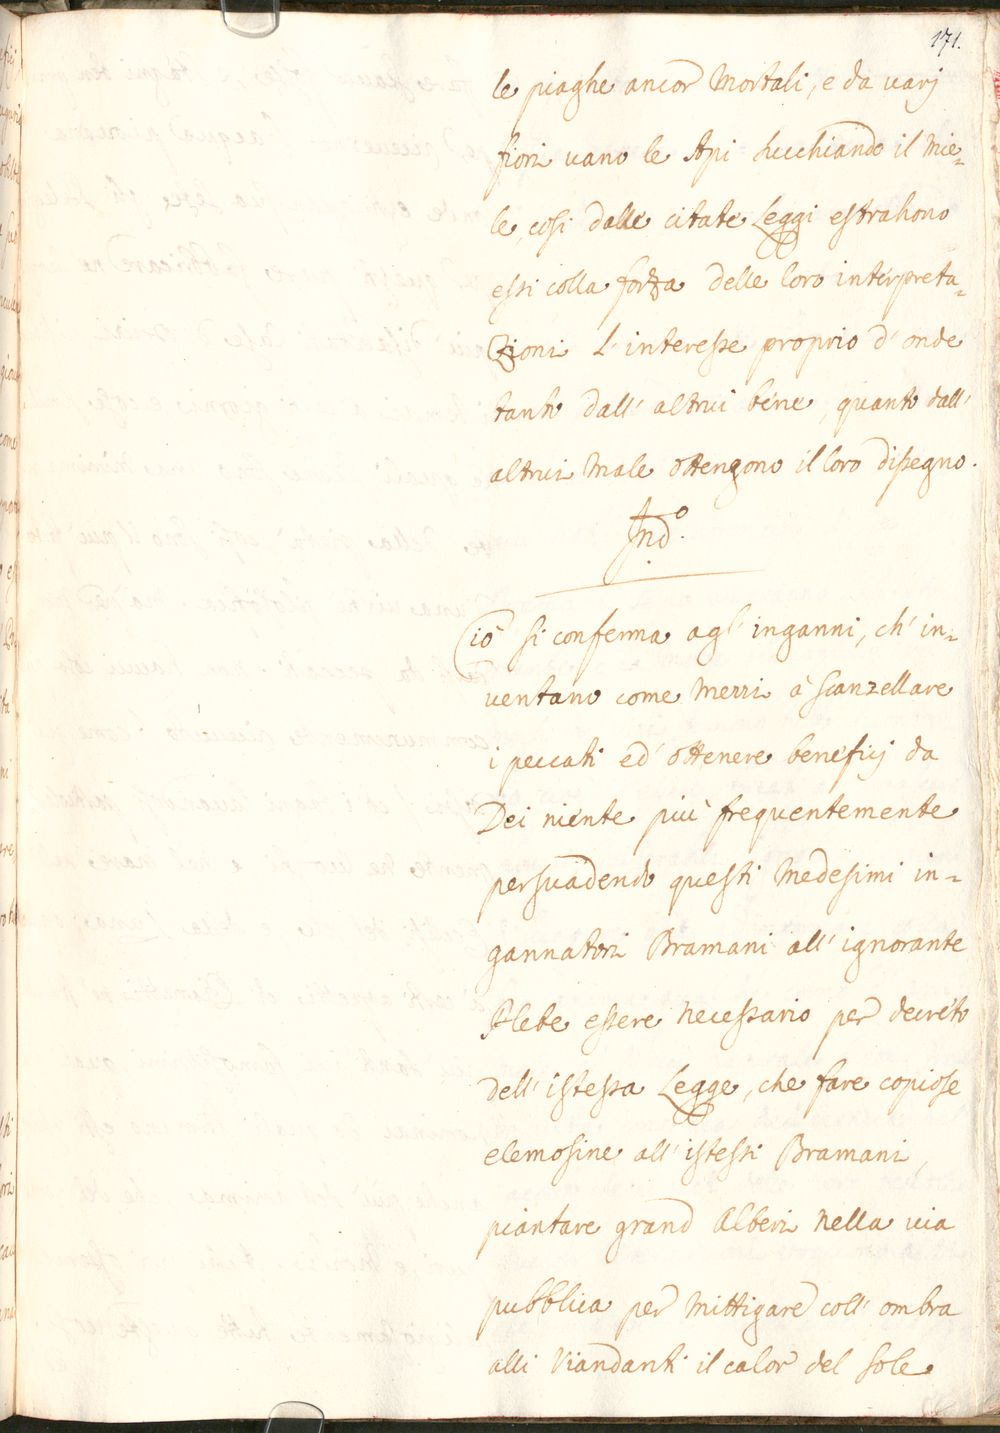 171.
le piaghe ancor Mortali, e da varj
fiori vano le Api succhiando il Mie-
le, così dalle citate Leggi estrahono
essi colla forza delle loro interpreta-
zioni l'interesse proprio d'onde
tanto dall'altrui bene, quanto dall'
altrui Male ottengono il loro disegno.
Ind.o
Ciò si conferma agl'inganni, ch'in-
ventano come Merri à scanzellare
i peccati ed' ottenere beneficj da
Dei niente più frequentemente
persuadendo questi Medesimi in-
gannatori Bramani all'ignorante
Plebe essere necessario per decreto
dell'istessa Legge, che fare copiose
elemosine all'istessi Bramani,
piantare grand Alberi nella via
pubblica per Mittigare coll'ombra
alli Viandanti il calor del sole